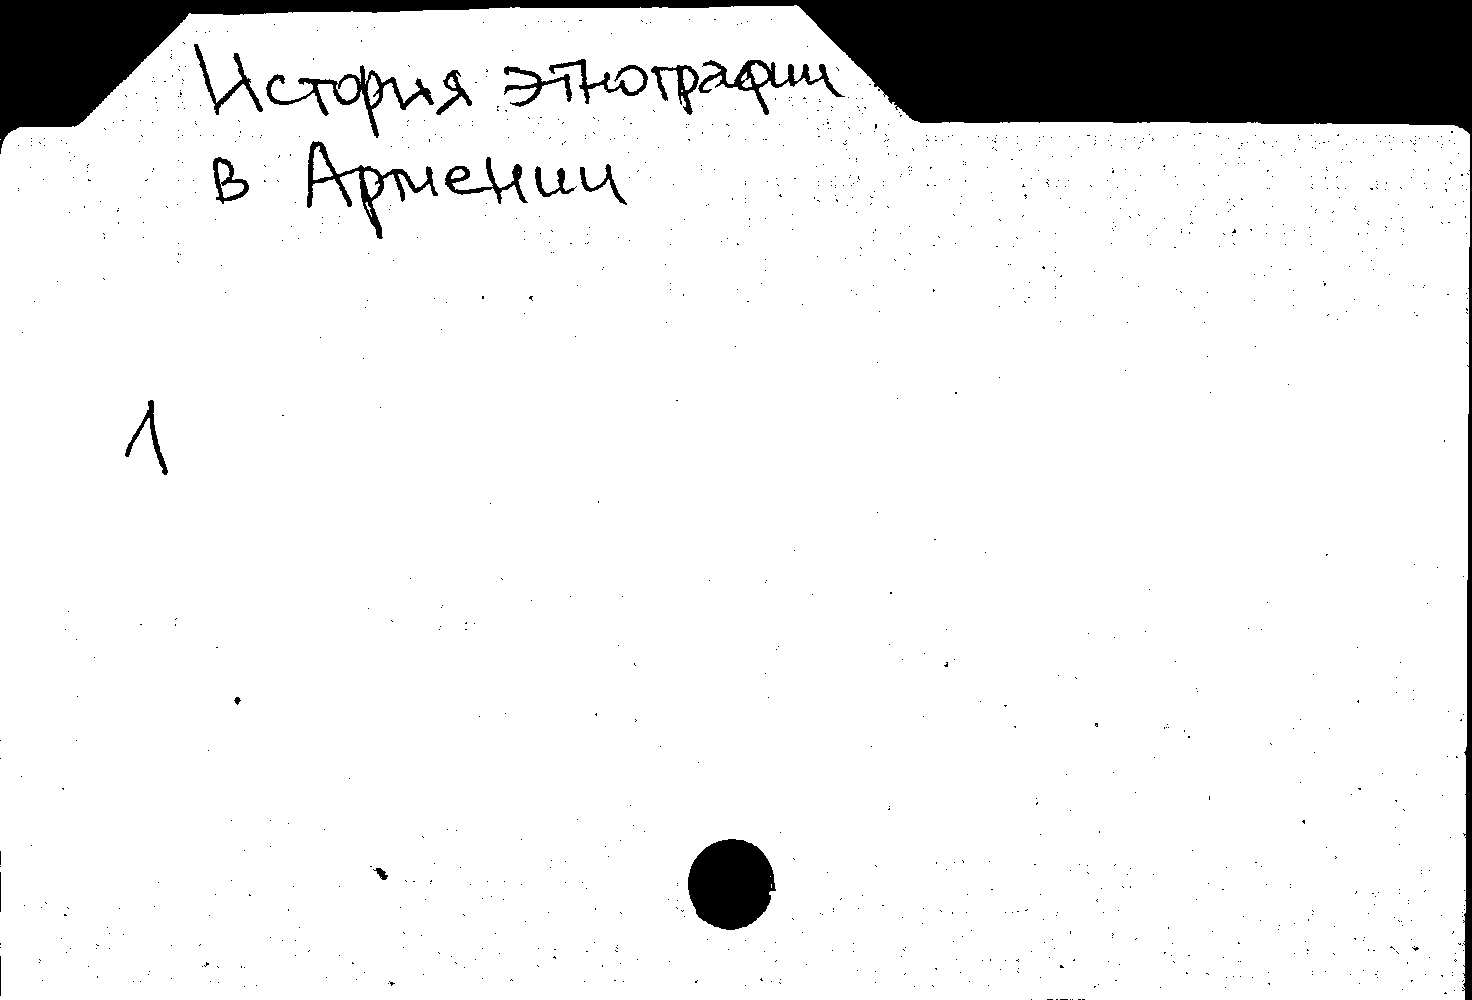 История этнографии
в Армении
1